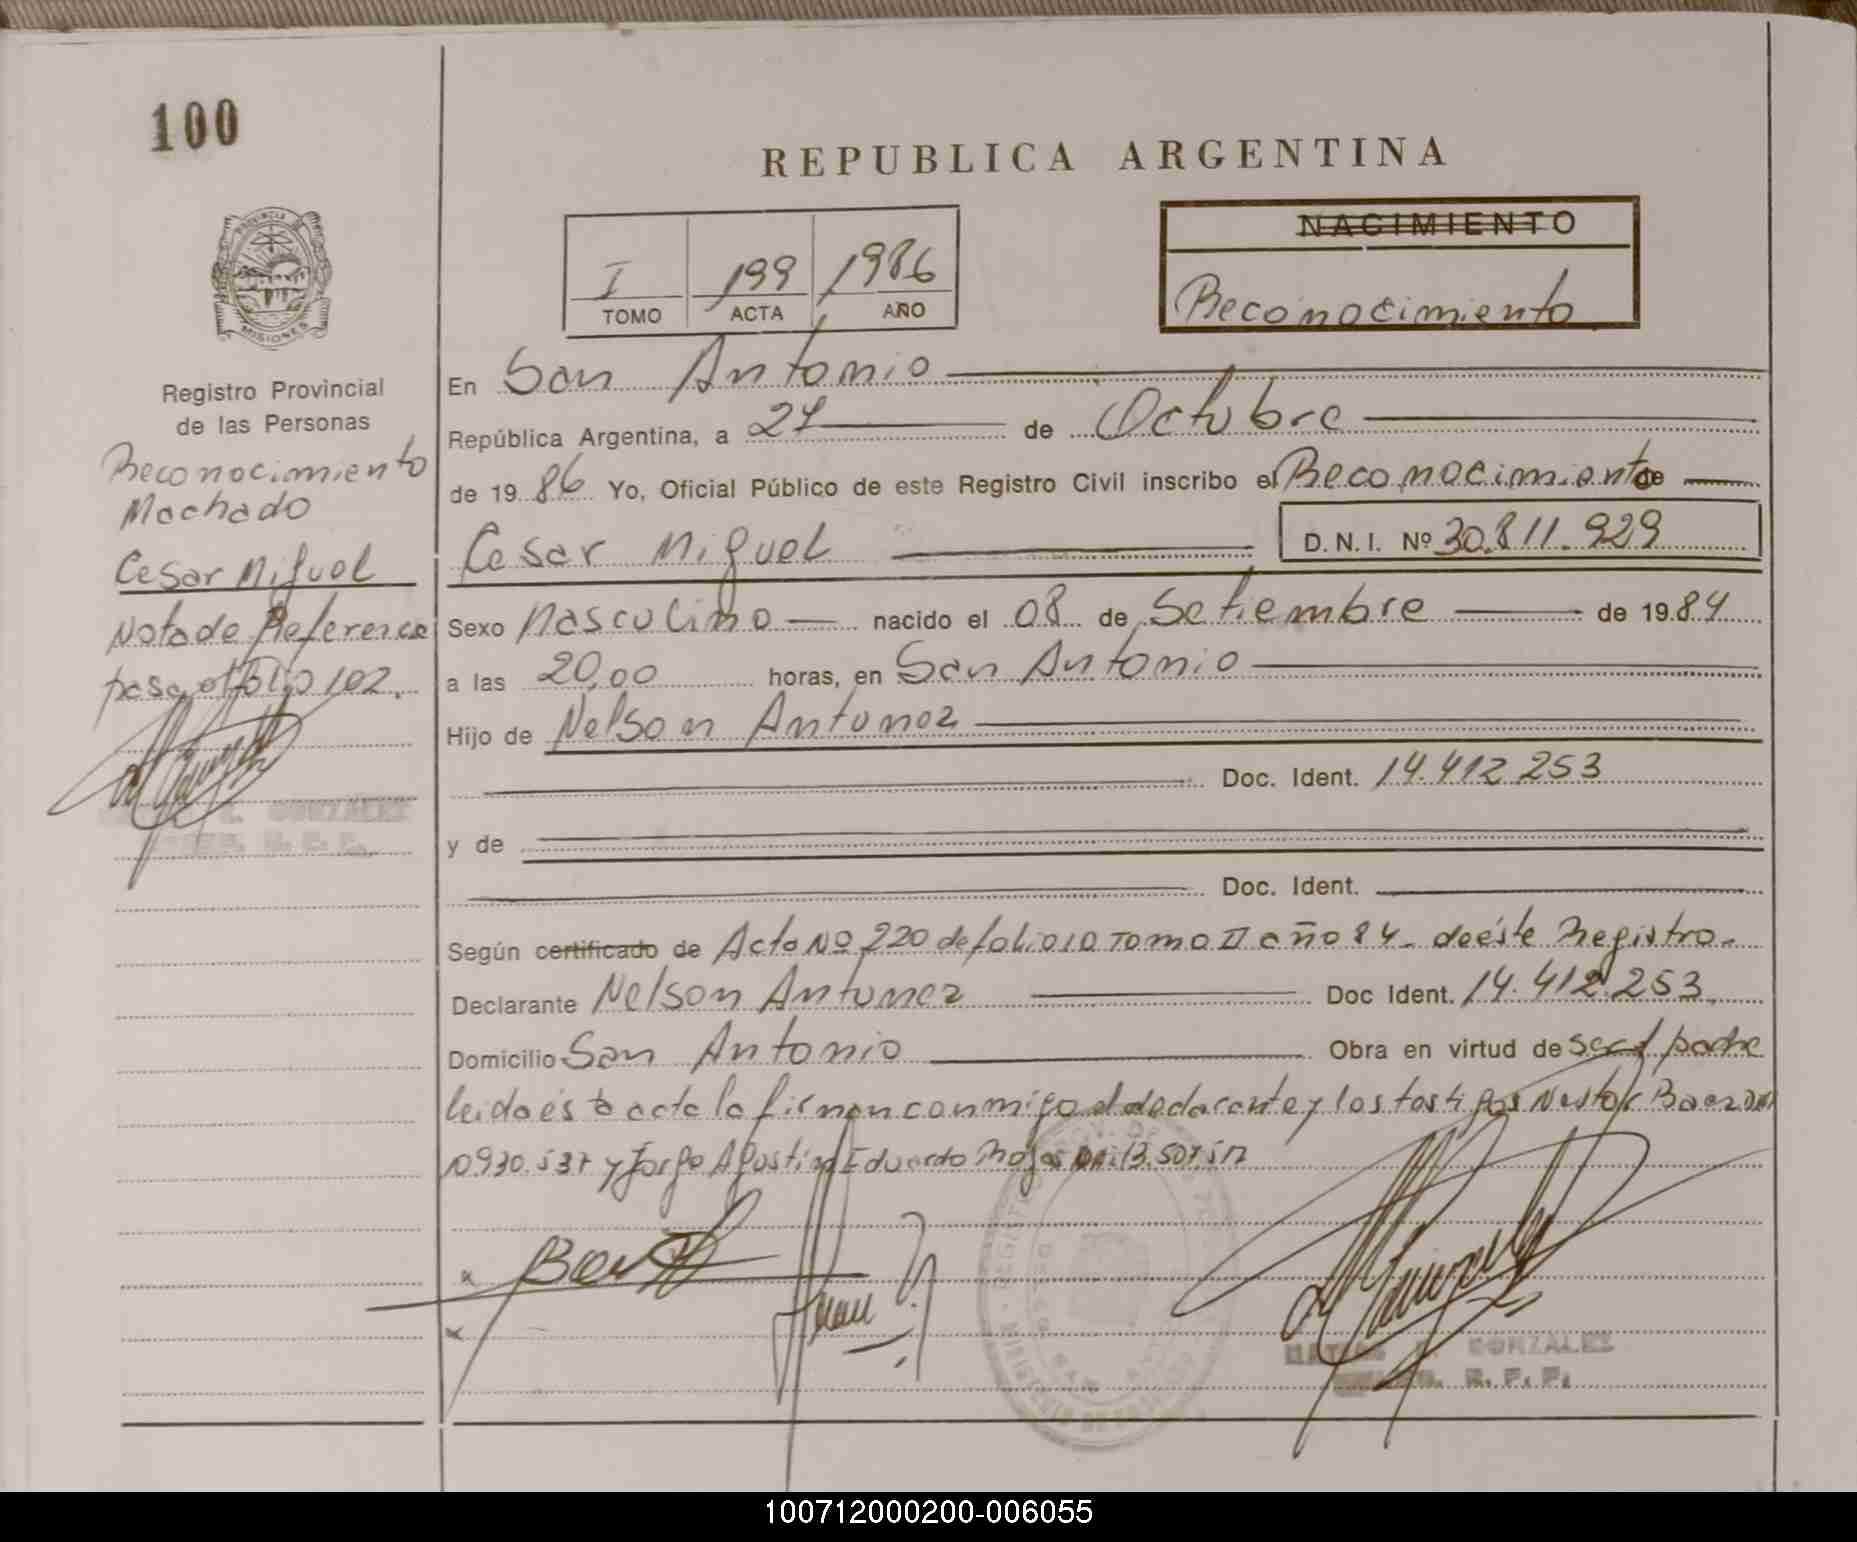 100
REPUBLICA ARGENTINA
PROVINCIA
MISIONES
I 199 1986
TOMO ACTA AÑO
NACIMIENTO
Reconocimiento
Registro Provincial
de las Personas
Reconocimiento
Machado
Cesar Miguel
Nota de Referencia
pasa al folio 102.
GONZALEZ
En San Antonio
República Argentina, a 27 de Octubre
de 1986 Yo, Oficial Público de este Registro Civil inscribo el Reconocimiento de
Cesar Miguel D.N.I. Nº 30.811.929
Sexo Masculino nacido el 08 de Setiembre de 1984
a las 20,00 horas, en San Antonio
Hijo de Nelson Antunez
Doc. Ident. 14.412.253
y de
Doc. Ident.
Según certificado de Acta Nº 220 del folio 10 Tomo II año 84 - de éste Registro.
Declarante Nelson Antunez Doc Ident. 14.412.253
Domicilio San Antonio Obra en virtud de ser el padre
leida esta acta la firman conmigo el declarante y los testigos Nestor Baez DNI
10930.537 y Jorge Agustin Eduardo Rojas DNI 13.507.517
GONZALEZ
100712000200-006055